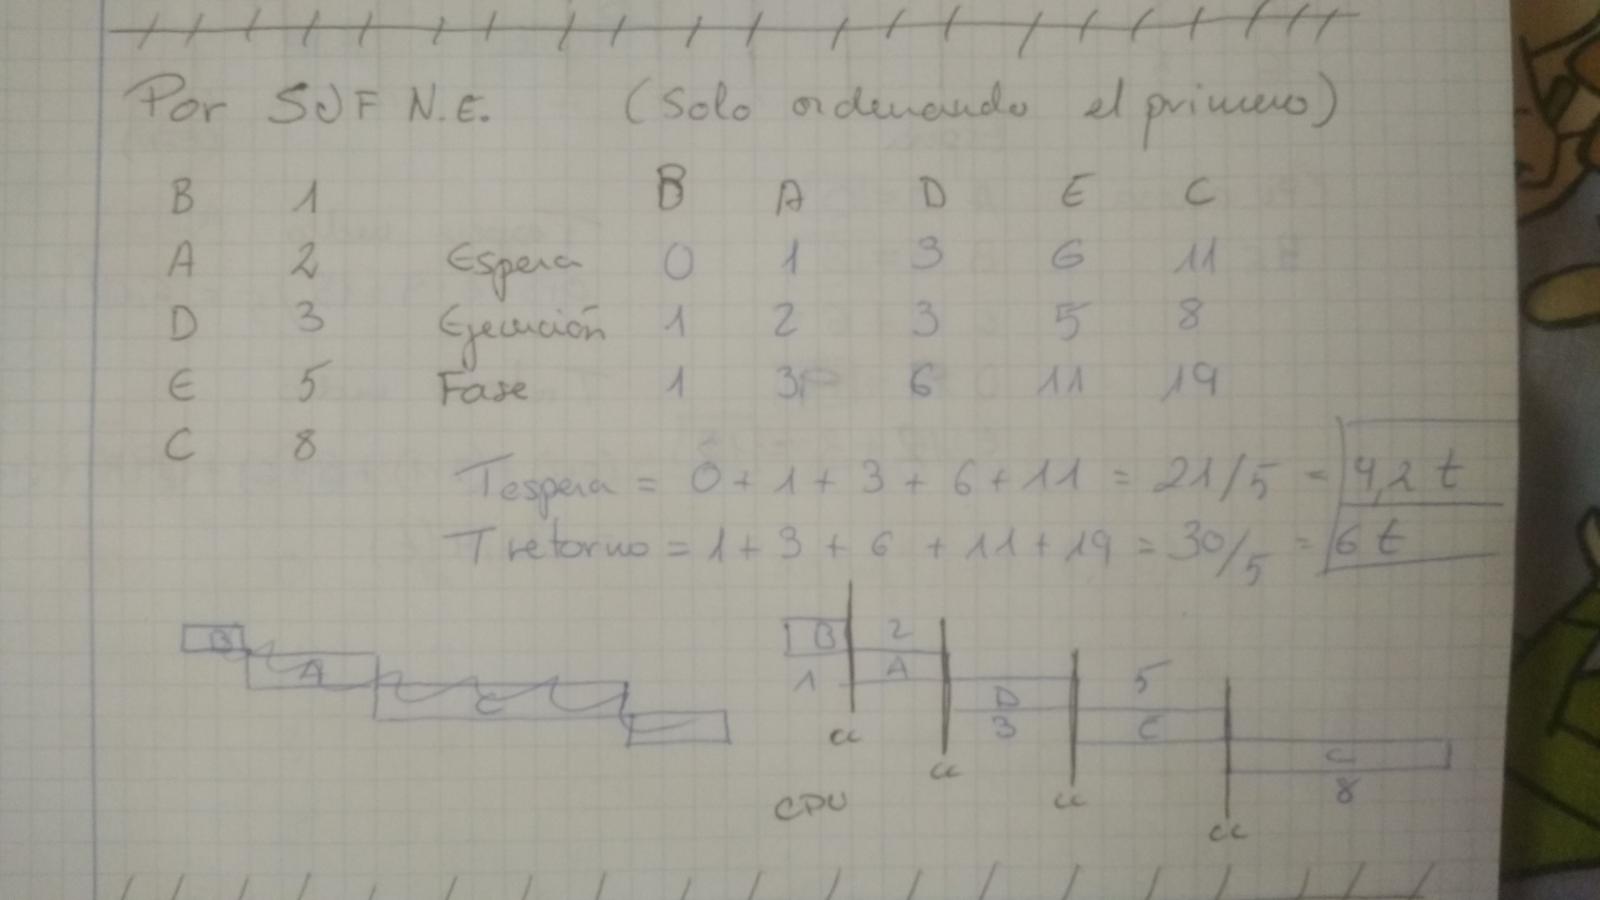 Por SJF N.E. (Solo ordenando el primero)
B 1 B A D E C
A 2 Espera 0 1 3 6 11
D 3 Ejecución 1 2 3 5 8
E 5 Fase 1 3 6 11 19
C 8
Tespera = 0 + 1 + 3 + 6 + 11 = 21/5 = 4,2 t
T retorno = 1 + 3 + 6 + 11 + 19 = 30/5 = 6 t
B B 2
A 1 A 5
C D E
3 C
cc cc cc 8
CPU cc